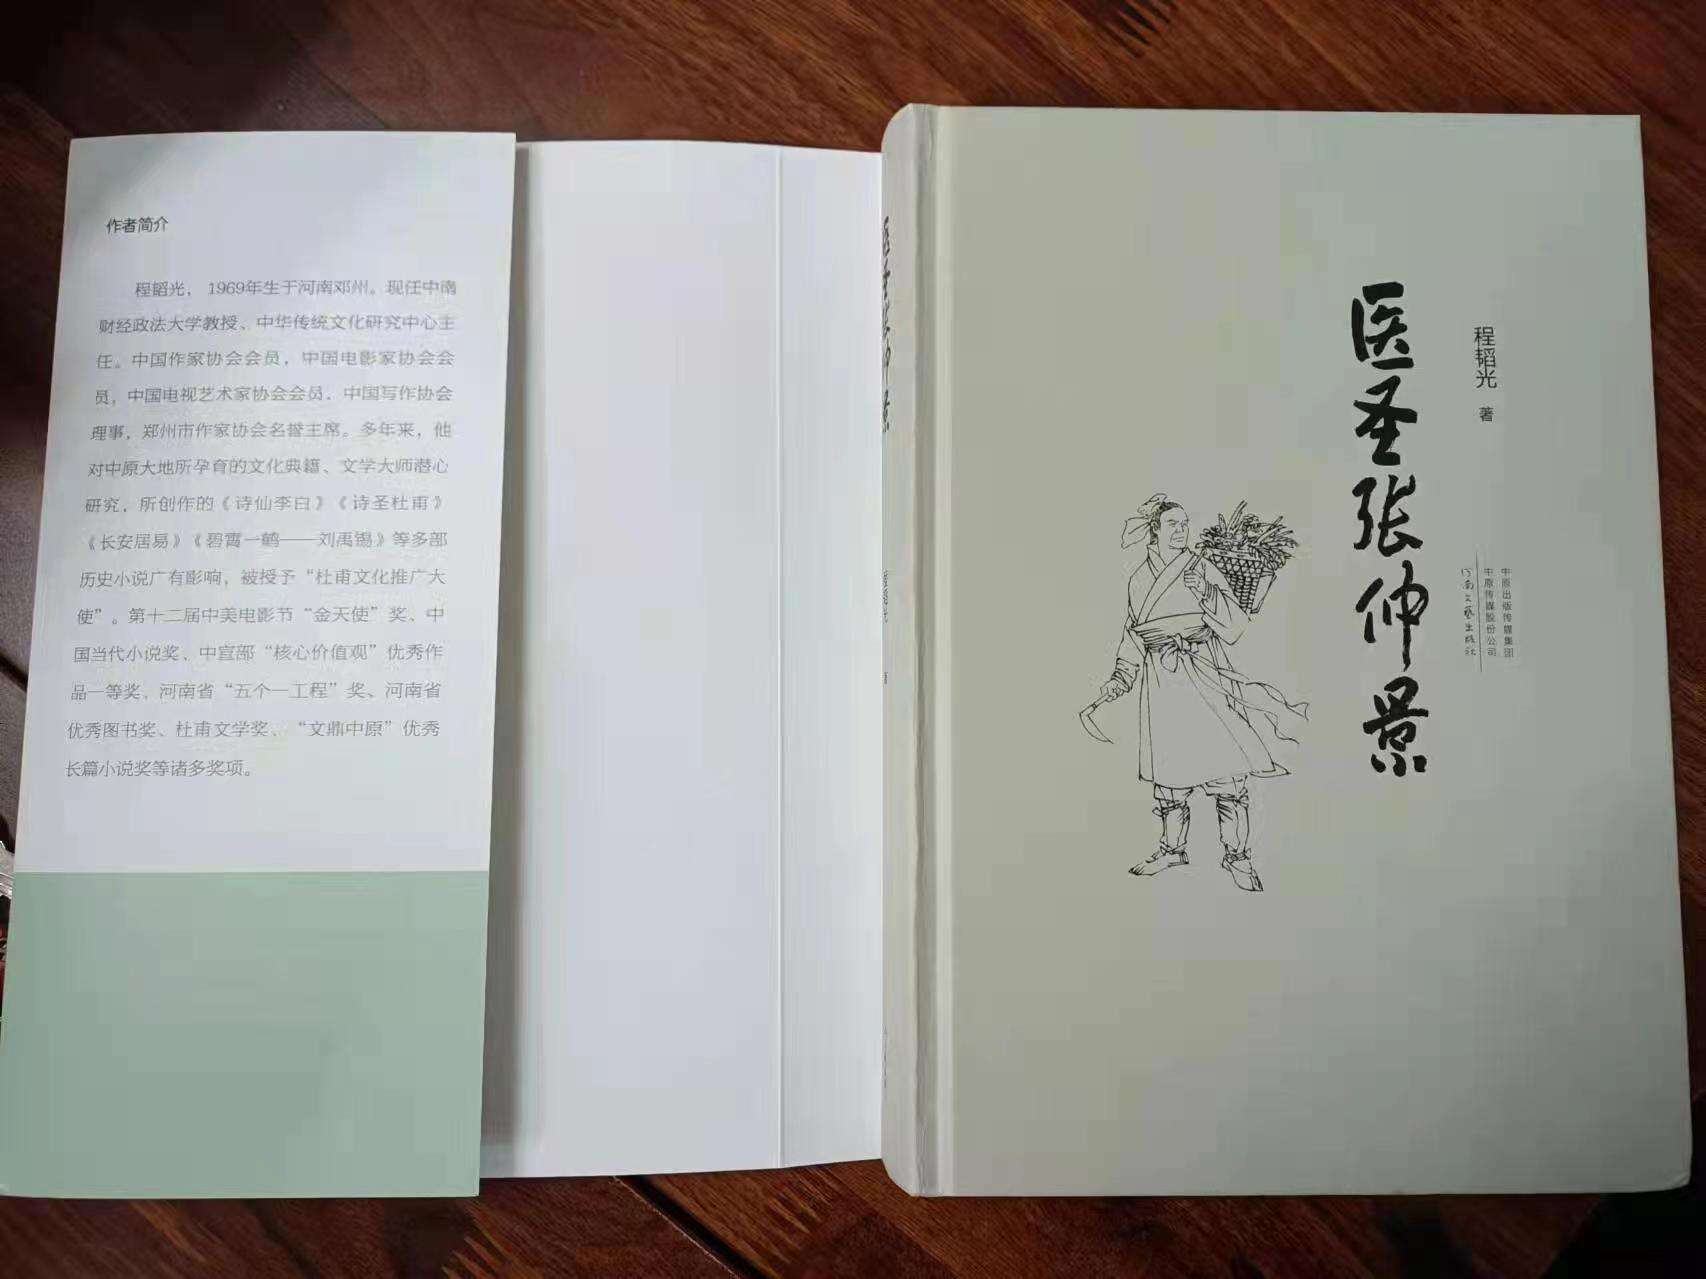 作者简介
程韬光，1969年生于河南邓州。现任中南
财经政法大学教授、中华传统文化研究中心主
任。中国作家协会会员，中国电影家协会会
员，中国电视艺术家协会会员，中国写作协会
理事，郑州市作家协会名誉主席。多年来，他
对中原大地所孕育的文化典籍、文学大师潜心
研究，所创作的《诗仙李白》《诗圣杜甫》
《长安居易》《碧霄一鹤——刘禹锡》等多部
历史小说广有影响，被授予“杜甫文化推广大
使”。第十二届中美电影节“金天使”奖、中
国当代小说奖、中宣部“核心价值观”优秀作
品一等奖、河南省“五个一工程”奖、河南省
优秀图书奖、杜甫文学奖、“文鼎中原”优秀
长篇小说奖等诸多奖项。
医圣张仲景
程韬光 著
医圣张仲景
程韬光 著
中原出版传媒集团
中原传媒股份公司
河南文艺出版社